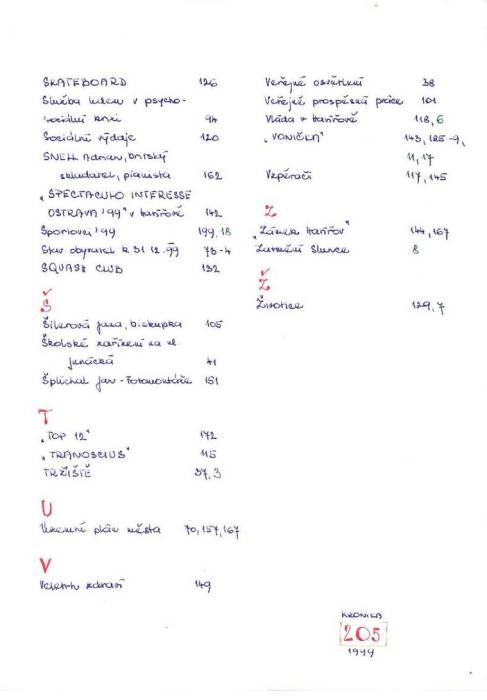 SKATEBOARD 126
Služba lidem v psycho-
sociální krizi 94
Sociální výdaje 120
SNELL Adrian, britský
skladatel, pianista 162
„SPECTACULO INTERESSE
OSTRAVA '99" v Havířově 142
Sportovci '99 199, 18
Stav obyvatel k 31.12.99 73-4
SQUASH CLUB 132
Š
Šilerová Jana, biskupka 105
Školské zařízení na ul
Junácká 41
Šplíchal Jan - Fotomontáže 151
T
„TOP 12" 172
„TRANOSCIUS" 115
TRŽIŠTĚ 37, 3
U
Územní plán města 70, 157, 167
V
Veletrh zdraví 149
Veřejné osvětlení 38
Veřejně prospěšné práce 101
Vláda v Havířově 118, 6
„VONIČKA" 143, 185-9,
11, 17
Vzpěrači 117, 145
Z
„Zámek Havířov" 144, 167
Zatmění Slunce 8
Ž
Životice 129, 7
KRONIKA
205
1999